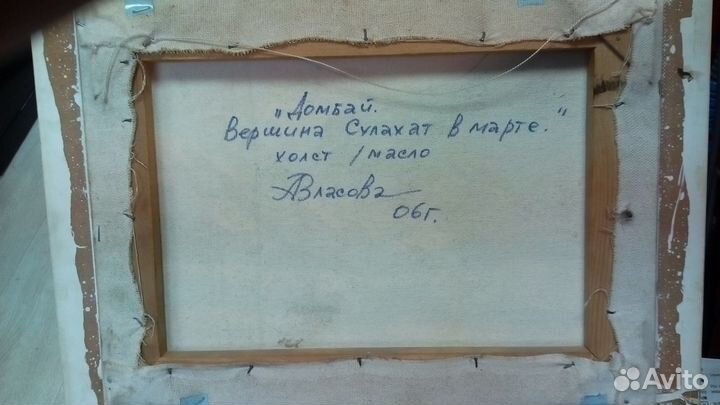 „Домбай.
Вершина Сулахат в марте."
холст / масло
АВласова
06г.
Avito